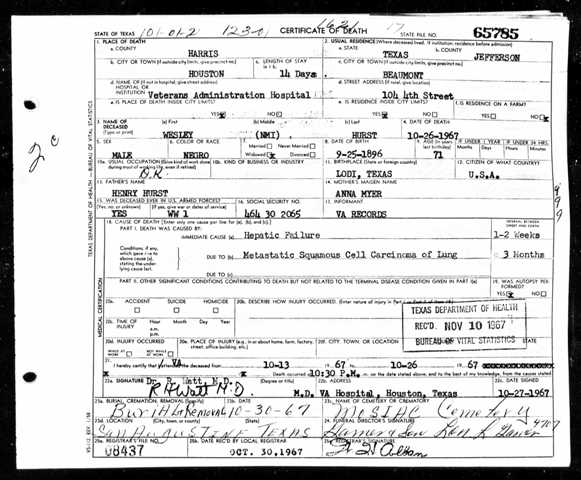 STATE OF TEXAS
CERTIFICATE OF DEATH
STATE FILE NO. 65785
1. PLACE OF DEATH
a. COUNTY
HARRIS
2. USUAL RESIDENCE (Where deceased lived. If institution: residence before admission)
a. STATE TEXAS
b. COUNTY JEFFERSON
b. CITY OR TOWN (If outside city limits, give precinct no.)
HOUSTON
c. LENGTH OF STAY
14 Days
c. CITY OR TOWN (If outside city limits, give precinct no.)
BEAUMONT
d. NAME OF (If not in hospital, give street address)
HOSPITAL OR
INSTITUTION
Veterans Administration Hospital
d. STREET ADDRESS (If rural, give location)
104 4th Street
e. IS PLACE OF DEATH INSIDE CITY LIMITS?
YES NO
e. IS RESIDENCE INSIDE CITY LIMITS?
YES NO
f. IS RESIDENCE ON A FARM?
YES NO
3. NAME OF DECEASED
(a) First (b) Middle (c) Last
WESLEY (NMI) HURST
4. DATE OF DEATH
10-26-1967
5. SEX
MALE
6. COLOR OR RACE
NEGRO
7. Married Never Married
Widowed Divorced
8. DATE OF BIRTH
9-25-1896
9. AGE (In years last birthday)
71
IF UNDER 1 YEAR
IF UNDER 24 HRS.
10a. USUAL OCCUPATION (Give kind of work done during most of working life, even if retired)
10b. KIND OF BUSINESS OR INDUSTRY
11. BIRTHPLACE (State or foreign country)
LODI, TEXAS
12. CITIZEN OF WHAT COUNTRY?
U.S.A.
13. FATHER'S NAME
HENRY HURST
14. MOTHER'S MAIDEN NAME
ANNA MYER
15. WAS DECEASED EVER IN U.S. ARMED FORCES?
(Yes, no, or unknown) (If yes, give war or dates of service)
YES WW 1
16. SOCIAL SECURITY NO.
464 30 2065
17. INFORMANT
VA RECORDS
18. CAUSE OF DEATH [Enter only one cause per line for (a), (b), and (c).]
PART I. DEATH WAS CAUSED BY:
IMMEDIATE CAUSE (a) Hepatic Failure
INTERVAL BETWEEN ONSET AND DEATH
1-2 Weeks
Conditions, if any, which gave rise to above cause (a), stating the underlying cause last.
DUE TO (b) Metastatic Squamous Cell Carcinoma of Lung
3 Months
DUE TO (c)
PART II. OTHER SIGNIFICANT CONDITIONS CONTRIBUTING TO DEATH BUT NOT RELATED TO THE TERMINAL DISEASE CONDITION GIVEN IN PART I(a)
19. WAS AUTOPSY PERFORMED?
YES NO
20a. ACCIDENT SUICIDE HOMICIDE
20b. DESCRIBE HOW INJURY OCCURRED.
20c. TIME OF INJURY
Hour Month Day Year
a.m.
p.m.
TEXAS DEPARTMENT OF HEALTH
REC'D. NOV 10 1967
BUREAU OF VITAL STATISTICS
20d. INJURY OCCURRED
WHILE AT WORK NOT WHILE AT WORK
20e. PLACE OF INJURY (e.g., in or about home, farm, factory, street, office building, etc.)
20f. CITY, TOWN, OR LOCATION
21. I hereby certify that VA attended the deceased from 10-13 1967 to 10-26 1967
Death occurred at 10:30 P.M. on the date stated above, and to the best of my knowledge, from the causes stated.
22a. SIGNATURE
Dr. R. Watt, M.D.
(Degree or title)
M.D.
22b. ADDRESS
VA Hospital, Houston, Texas
22c. DATE SIGNED
10-27-1967
23a. BURIAL, CREMATION, REMOVAL (Specify)
Burial & Removal
23b. DATE
10-30-67
23c. NAME OF CEMETERY OR CREMATORY
MOSIAC Cemetery
23d. LOCATION (City, town, or county) (State)
SAN AUGUSTINE TEXAS
24. FUNERAL DIRECTOR'S SIGNATURE
25a. REGISTRAR'S FILE NO.
08437
25b. DATE REC'D BY LOCAL REGISTRAR
OCT. 30, 1967
25c. REGISTRAR'S SIGNATURE
TEXAS DEPARTMENT OF HEALTH—BUREAU OF VITAL STATISTICS
MEDICAL CERTIFICATION